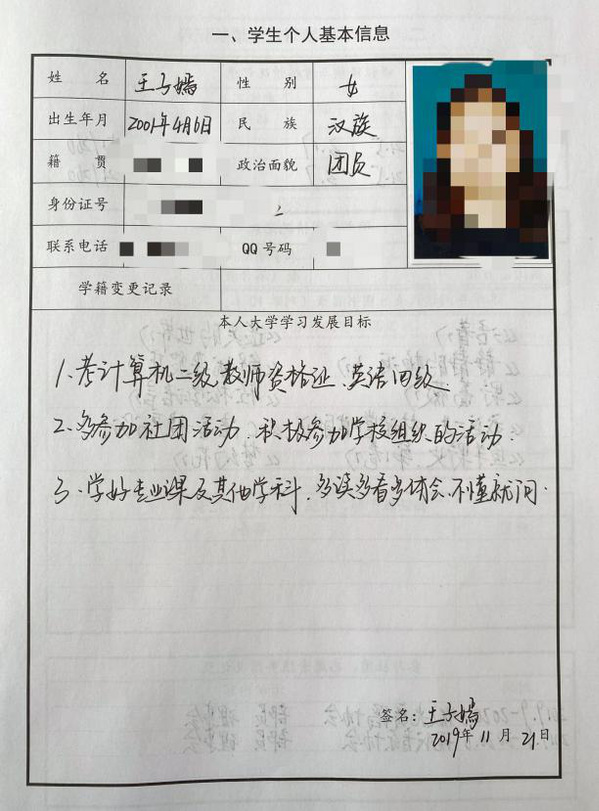 一、学生个人基本信息
姓 名 王子嫣 性 别 女
出生年月 2001年4月6日 民 族 汉族
籍 贯 政治面貌 团员
身份证号
联系电话 QQ号码
学籍变更记录
本人大学学习发展目标
1.考计算机二级、教师资格证、英语四级
2.多参加社团活动,积极参加学校组织的活动.
3.学好专业课及其他学科,多读多看多体会、不懂就问.
签名:王子嫣
2019年11月21日